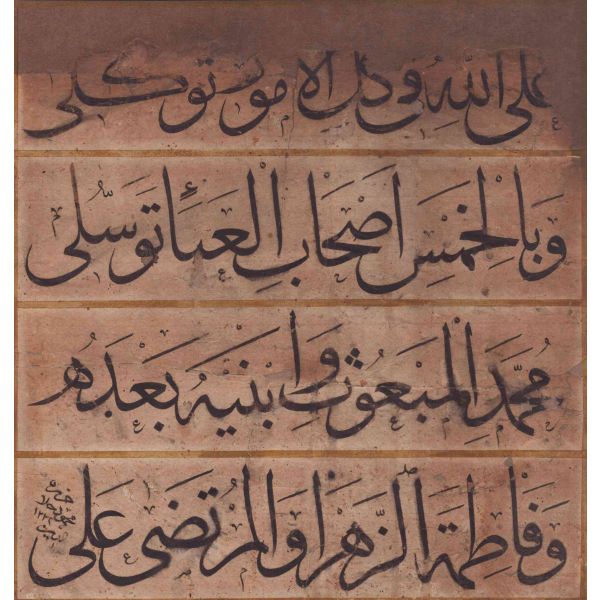 على الله في كل الامور توكلى
وبالخمس اصحاب العبا توسلى
محمد المبعوث وابنيه بعده
وفاطمة الزهرا والمرتضى على